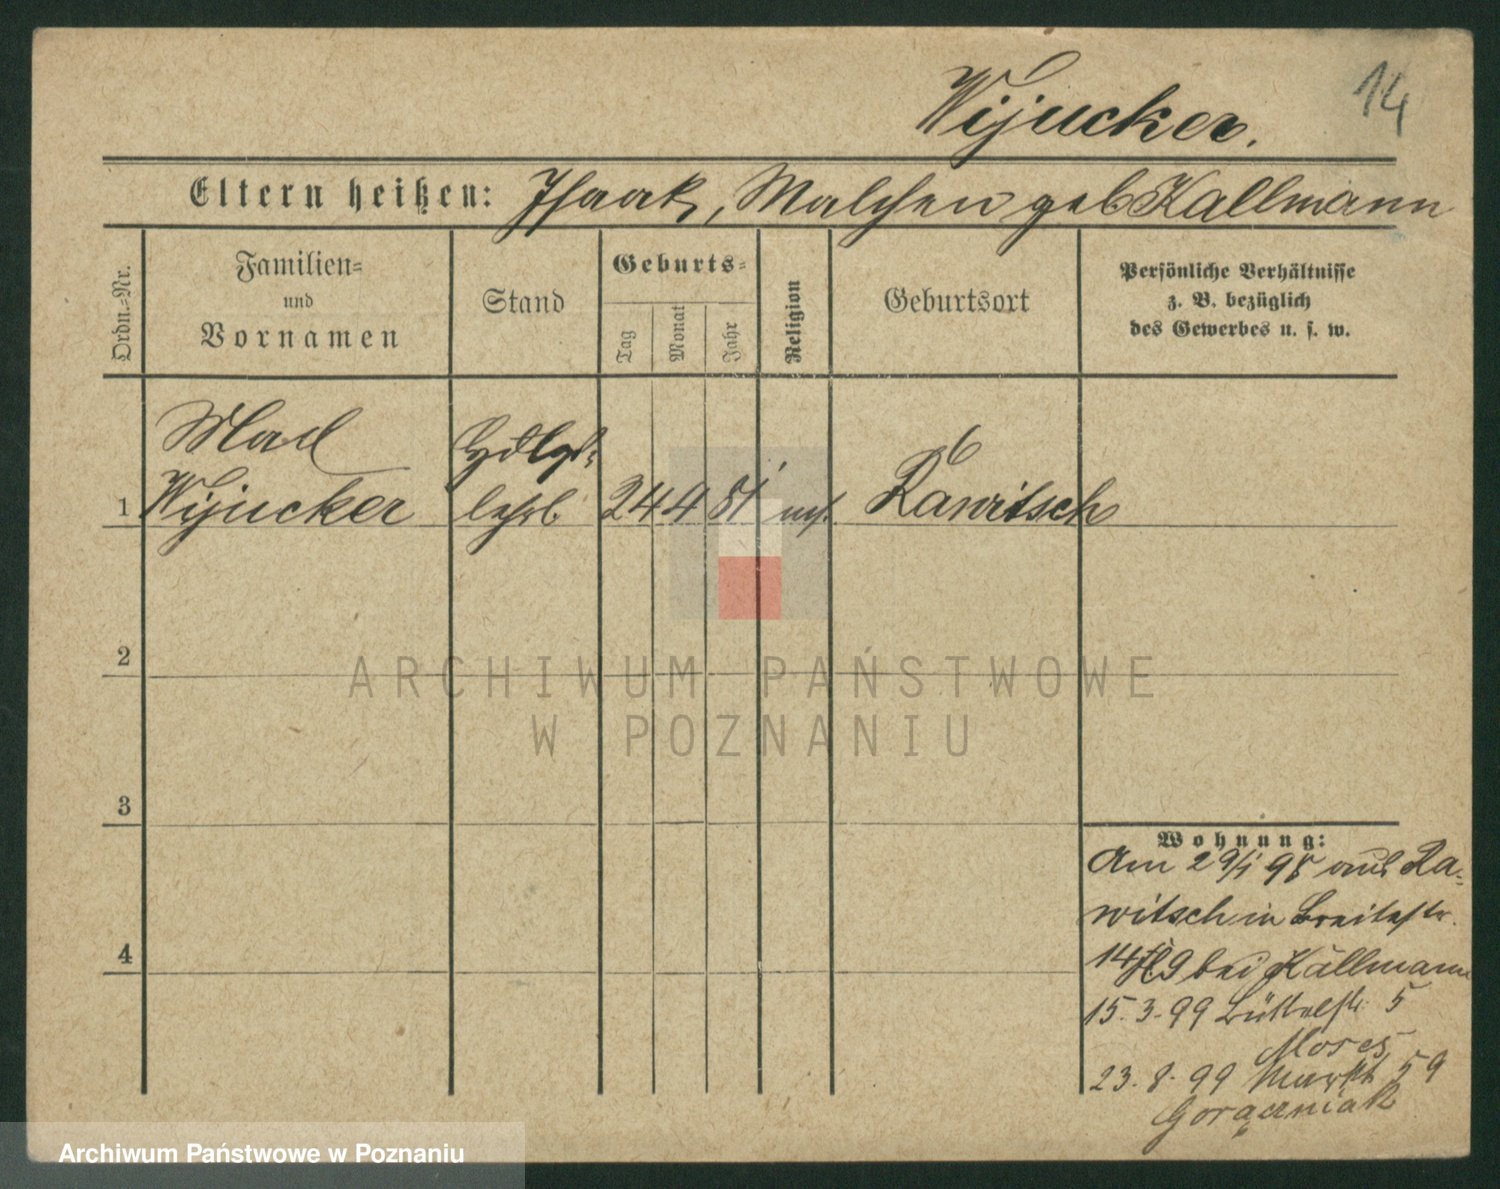 14
Wijucker.
Eltern heißen: Isaak, Malchen geb Kallmann
Ordn.-Nr.
Familien-
und
Vornamen
Stand
Geburts-
Tag
Monat
Jahr
Religion
Geburtsort
Persönliche Verhältnisse
z. B. bezüglich
des Gewerbes u. s. w.
1
Wijucker
24 4 81
Rawitsch
2
ARCHIWUM PAŃSTWOWE
W POZNANIU
3
4
Wohnung:
Am 29/1 98 aus Ra-
witsch in Breitestr.
14 bei Kallmann
15.3.99 Büttelstr. 5
Moses
23.8.99 Markt 59
Archiwum Państwowe w Poznaniu